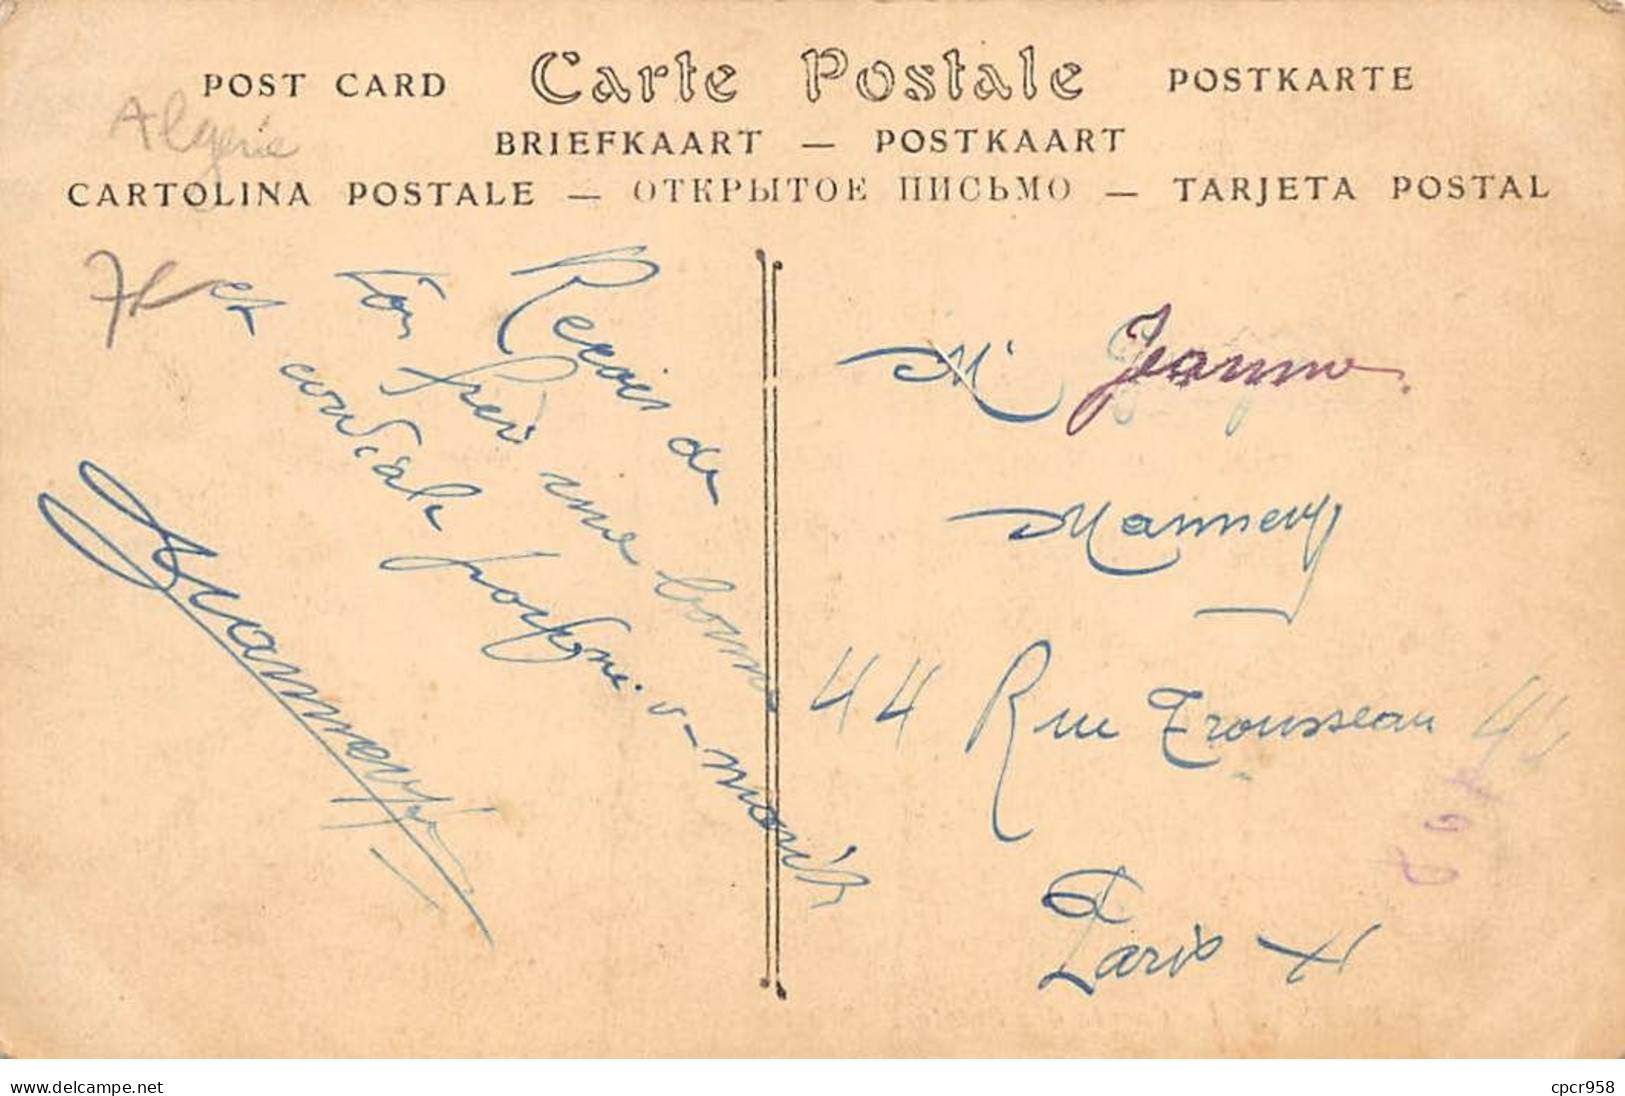 POST CARD Carte Postale POSTKARTE
Algérie
BRIEFKAART — POSTKAART
CARTOLINA POSTALE — ОТКРЫТОЕ ПИСЬМО — TARJETA POSTAL
Recois de
ton frère une bonne
et cordiale poignée
Mr Jeanne
44 Rue Trousseau
Paris XI
delcampe.net
cpcr958